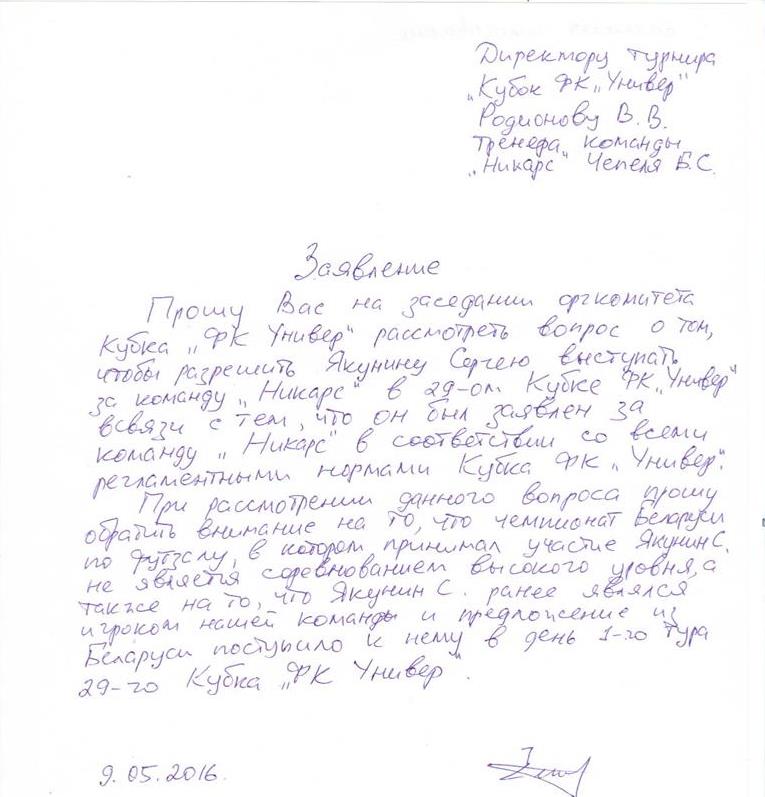 Директору турнира
„Кубок ФК „Универ"
Родионову В.В.
тренера команды
„Никарс" Чепеля Б.С.
Заявление
Прошу Вас на заседании оргкомитета
Кубка „ФК Универ" рассмотреть вопрос о том,
чтобы разрешить Якунину Сергею выступать
за команду „Никарс" в 29-ом Кубке ФК „Универ"
всвязи с тем, что он был заявлен за
команду „Никарс" в соответствии со всеми
регламентными нормами Кубка ФК „Универ".
При рассмотрении данного вопроса прошу
обратить внимание на то, что чемпионат Беларуси
по футзалу, в котором принимал участие Якунин С.
не является соревнованием высокого уровня, а
также на то, что Якунин С. ранее являлся
игроком нашей команды и предложение из
Беларуси поступило к нему в день 1-го тура
29-го Кубка „ФК Универ".
9.05.2016.